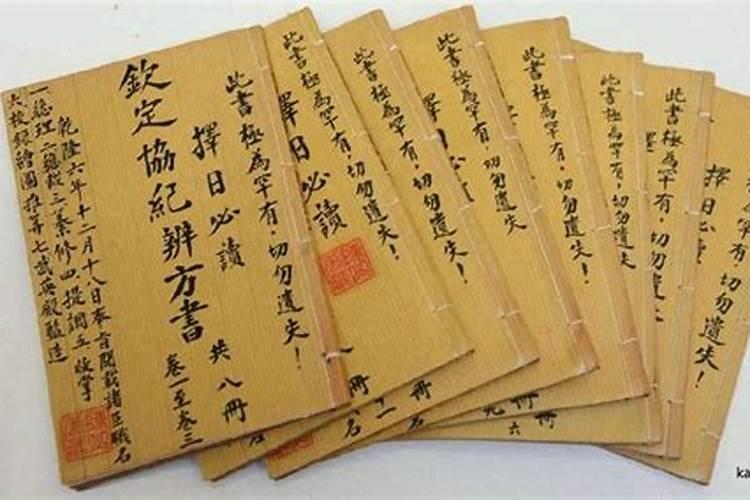 此書極為罕有,切勿遺失!
擇日必讀
共八冊
欽定協紀辨方書
卷一至卷三
乾隆六年十二月十八日奉旨開載諸臣職名
一總理二總裁三纂修四提調五收掌
六校錄繪圖推算七武英殿監造
此書極為罕有,切勿遺失!
擇日必讀
冊
名
此書極為罕有,切勿遺失!
擇日必讀
冊
名
此書極為罕有,切勿遺失
冊
此書極為罕有,切勿遺失!
冊
六
此書極為罕有,切勿遺失
此書極為罕有,切勿遺
罕有,切勿遺失!
擇日必讀
ka